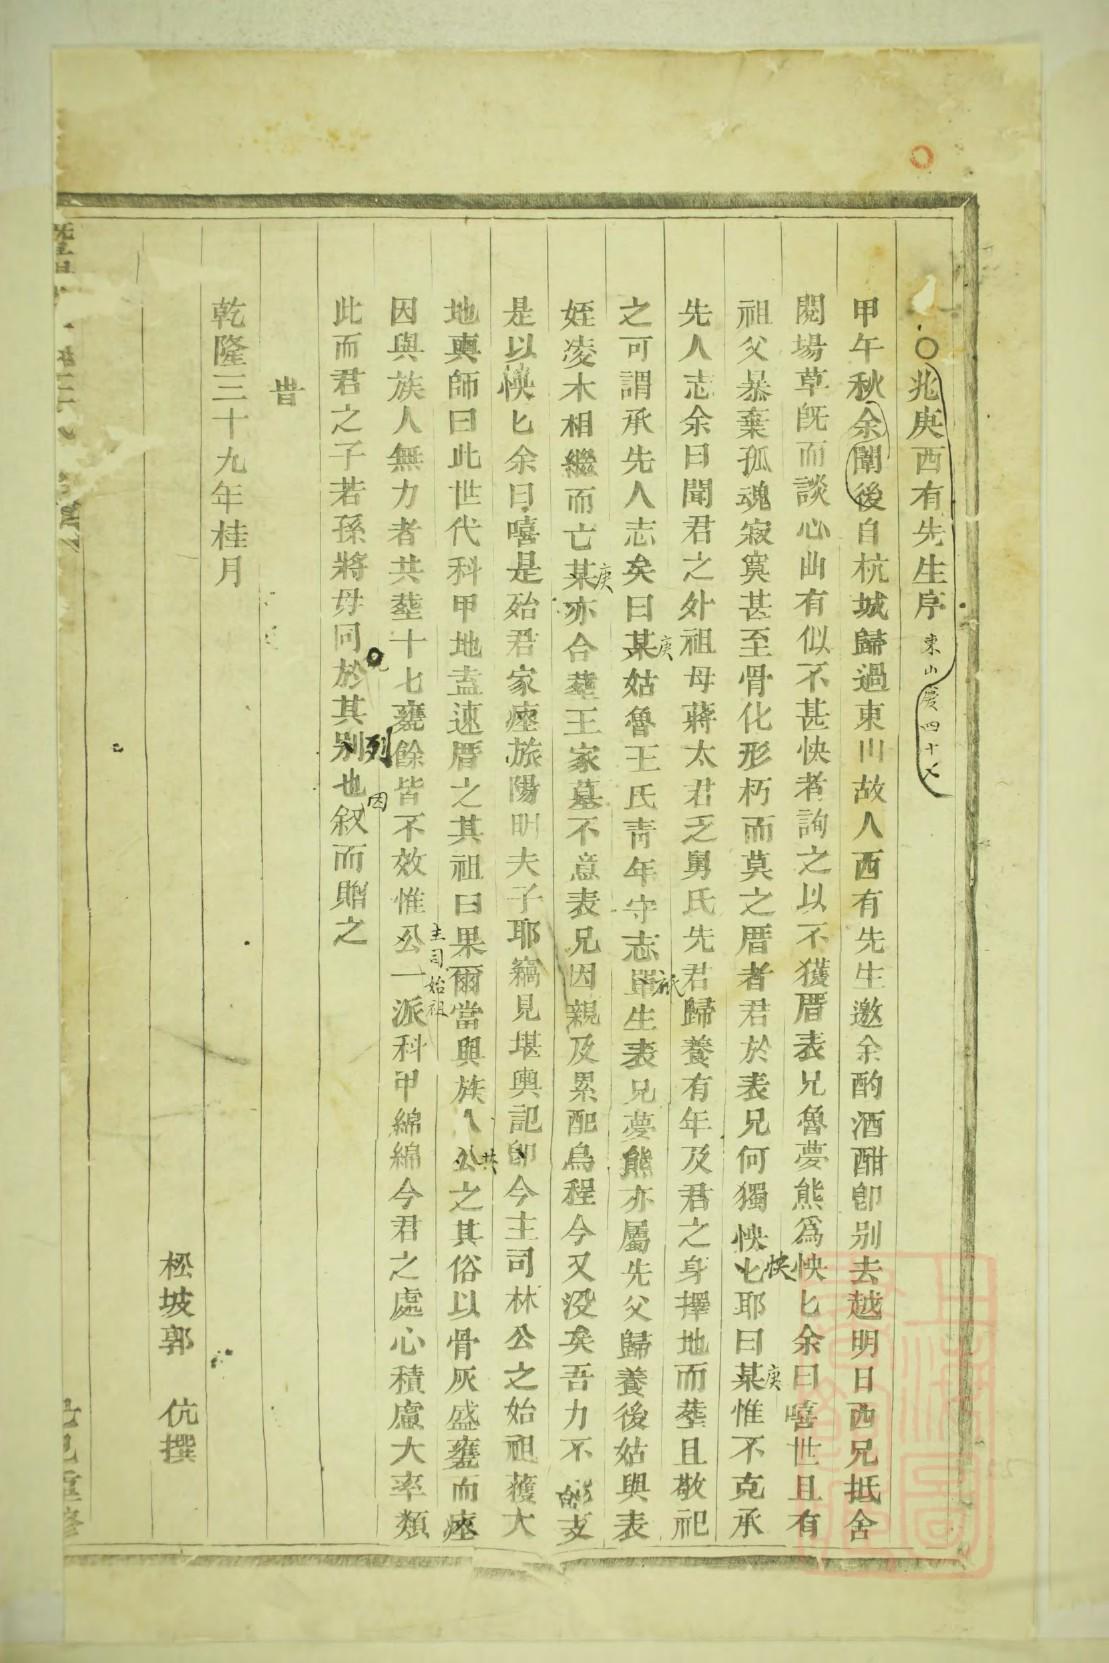 ○兆庚西有先生序 東山慶四十七
甲午秋余闈後自杭城歸過東山故人西有先生邀余酌酒酣卽别去越明日西兄抵舍
閱塲草旣而談心曲有似不甚快者詢之以不獲厝表兄魯夢熊爲怏匕余曰嘻世且有
祖父暴棄孤魂寂寞甚至骨化形朽而莫之厝者君於表兄何獨怏匕耶曰某惟不克承
怏
庚
先人志余曰聞君之外祖母蔣太君乏舅氏先君歸養有年及君之身擇地而塟且敬祀
之可謂承先人志矣曰某姑魯王氏靑年守志單生表兄夢熊亦屬先父歸養後姑與表
庚
祇
姪凌木相繼而亡某亦合塟王家墓不意表兄因親及累配烏程今又没矣吾力不能支
庚
是以怏匕余曰嘻是殆君家瘞旅陽明夫子耶竊見堪輿記卽今主司林公之始祖獲大
地輿師曰此世代科甲地盍速厝之其祖曰果爾當與族人公之其俗以骨灰盛甕而瘞
共
因與族人無力者共塟十七甕餘皆不效惟公一派科甲綿綿今君之處心積慮大率類
主司始祖
此而君之子若孫將毋同於其别也叙而贈之
列
因
旹
乾隆三十九年桂月
松坡郭 伉撰
重修